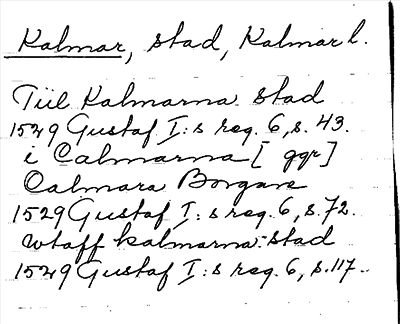 Kalmar, stad, Kalmar l.
Tiil Kalmarna stad
1529 Gustaf I:s reg. 6, s. 43.
i Calmarna [ ggr]
Calmara Borgare
1529 Gustaf I:s reg. 6, s. 72.
wtaff kalmarna stad
1529 Gustaf I:s reg. 6, s. 117.